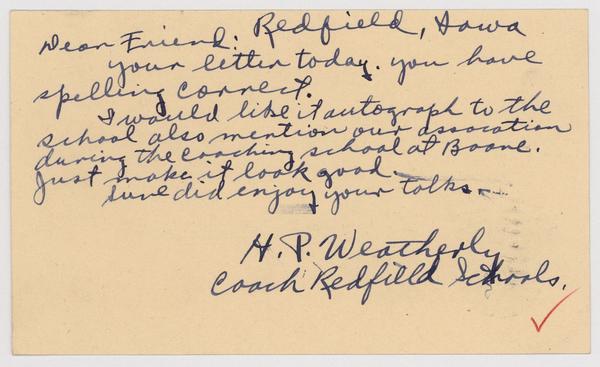 Redfield, Iowa
Dear Friend:
Your letter today. you have
spelling correct.
I would like it autograph to the
school also mention our assocation
during the coaching school at Boone.
Just make it look good.
Sure did enjoy your talks.
H. P. Weatherly
Coach Redfield Schools.